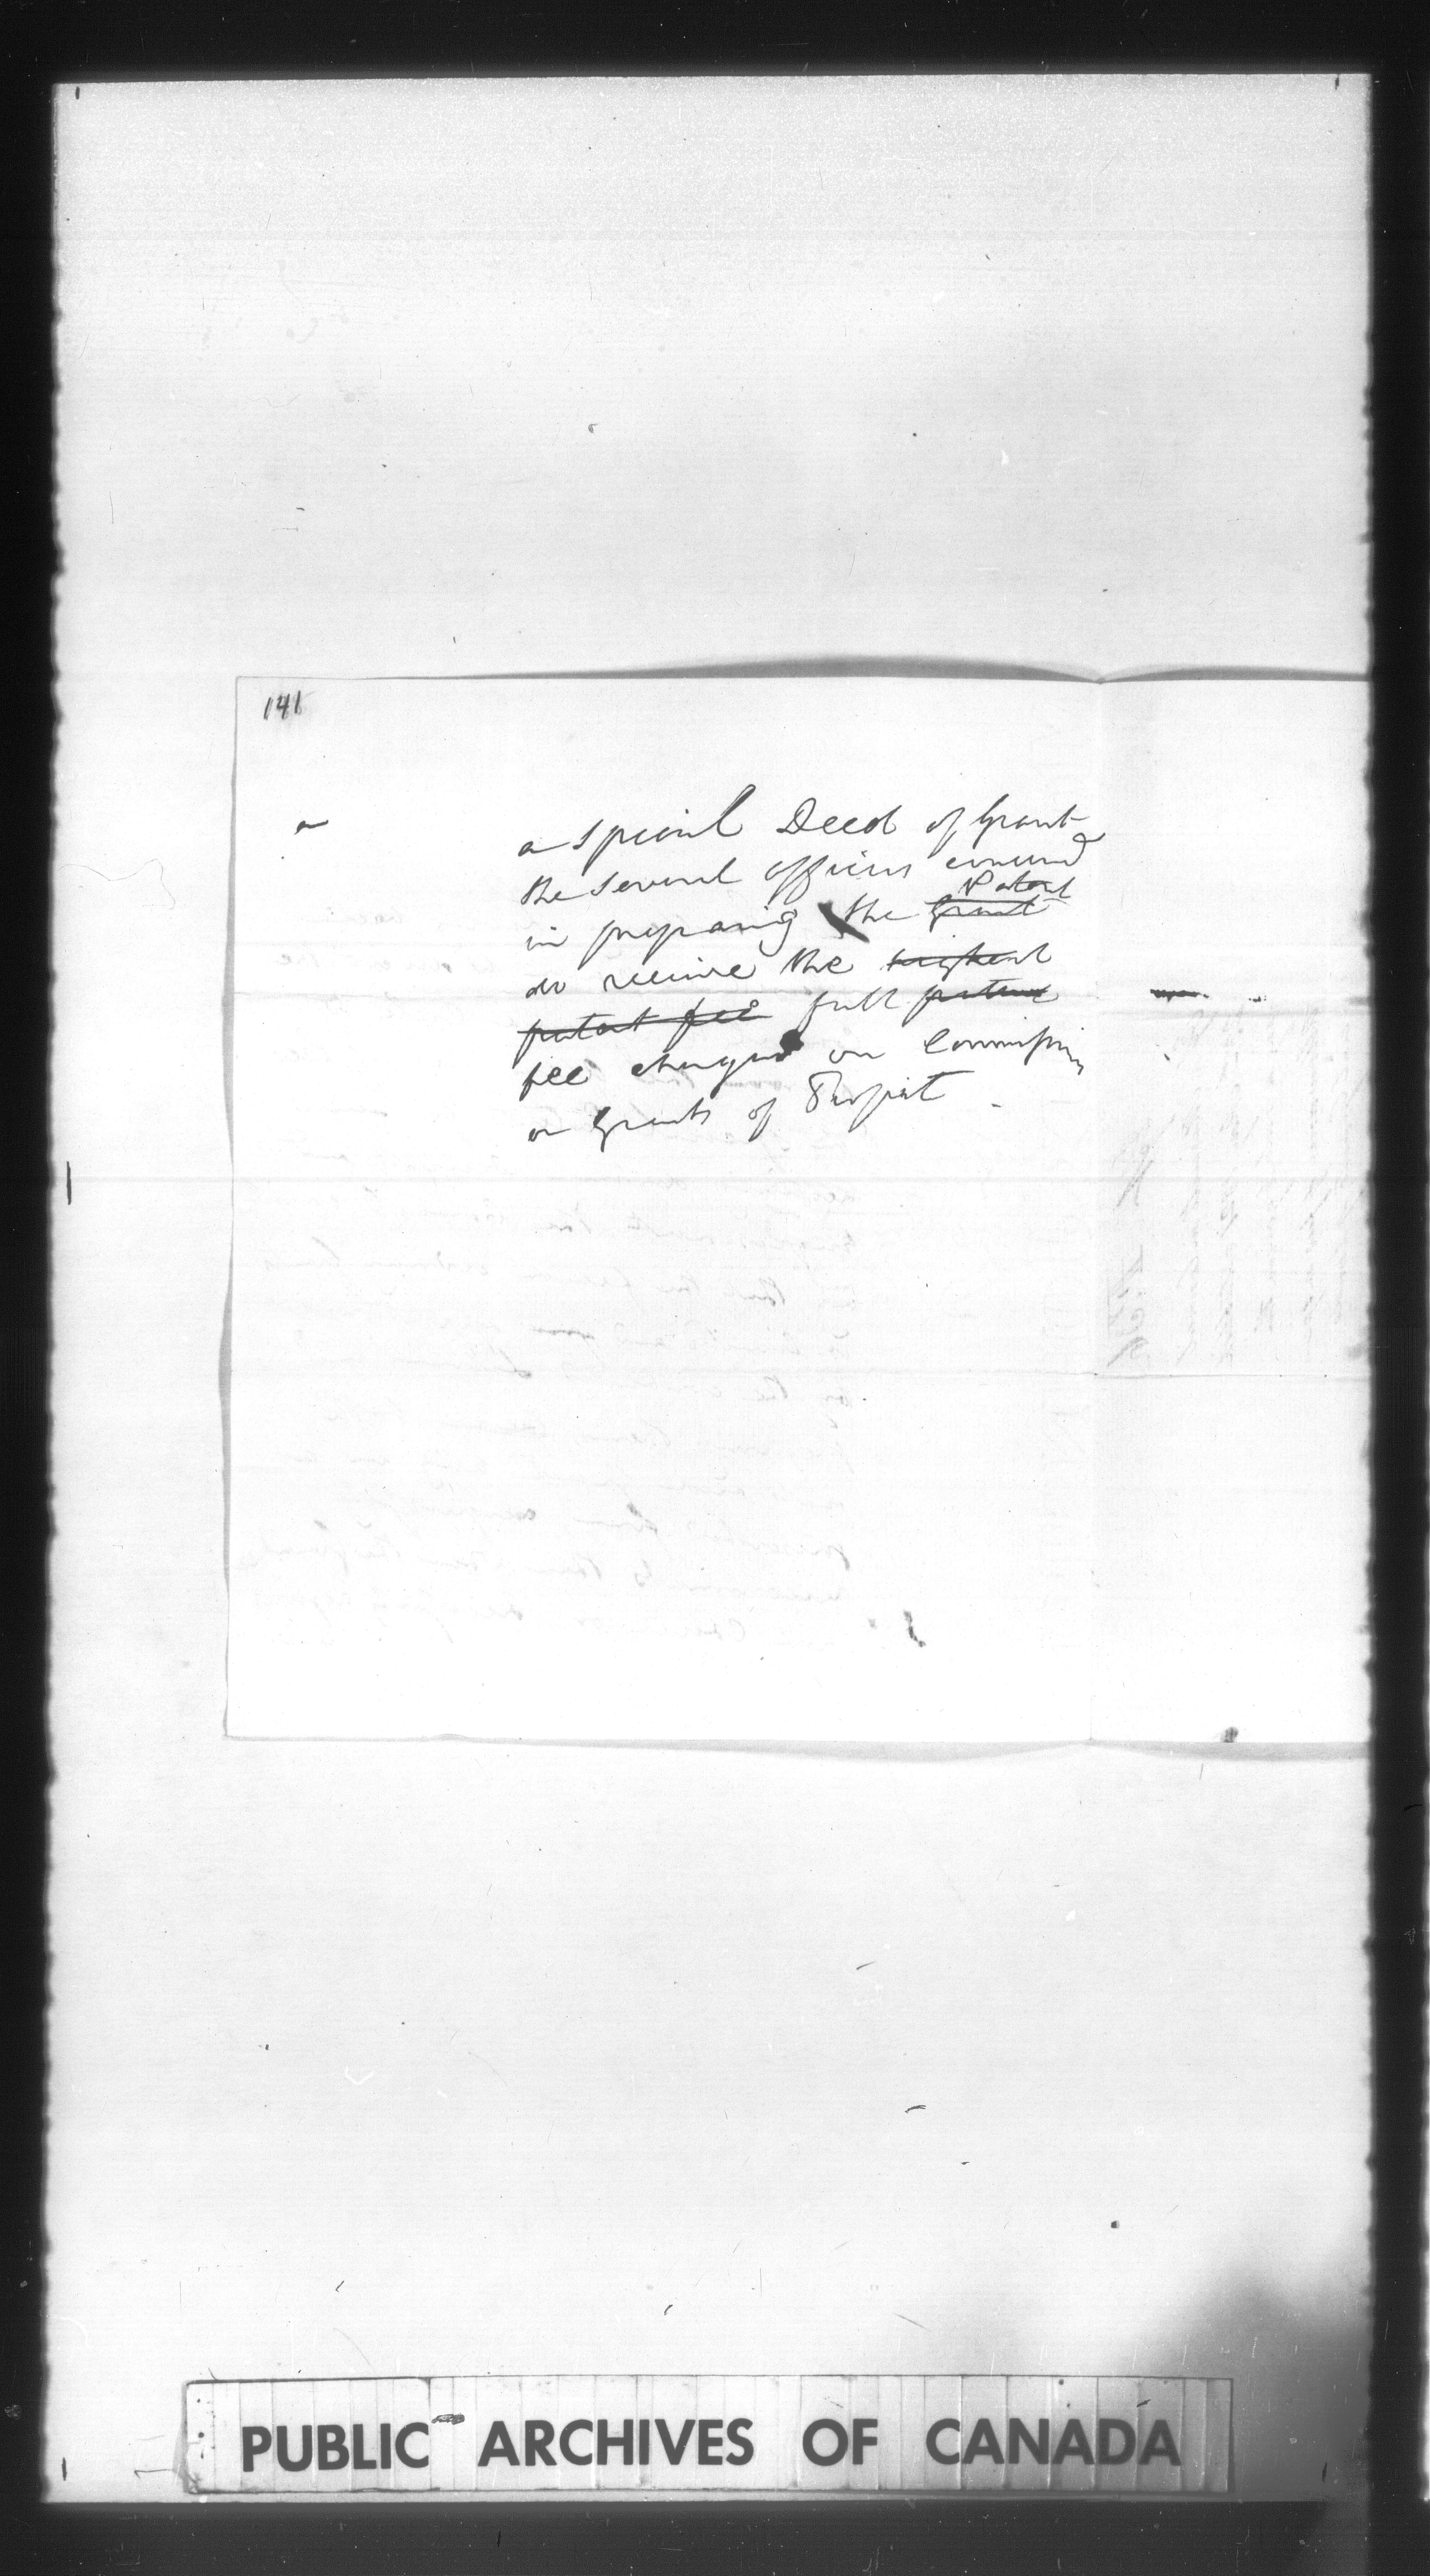 141
a special Deed of Grant
the several officers concernd
Patent
in preparing the Grant
do receive the highest
patent fee full patent
fee charged on Commission
or Grants of
PUBLIC ARCHIVES OF CANADA